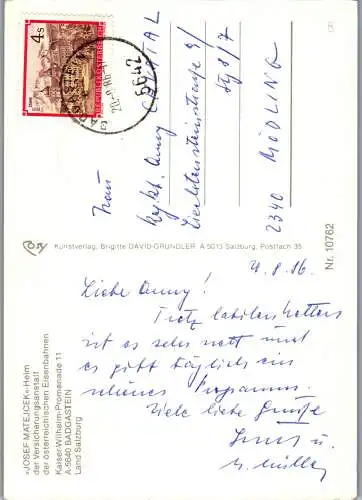 4s
REPUBLIK ÖSTERREICH
5640
Frau
Anny
2340 MÖDLING
Kunstverlag, Brigitte DAVID-GRÜNDLER A 5013 Salzburg, Postfach 35
Nr. 10762
»JOSEF MATEJCEK«-Heim
der Versicherungsanstalt
der österreichischen Eisenbahnen
Kaiser-Wilhelm-Promenade 11
A-5640 BADGASTEIN
Land Salzburg
4.8.86
Liebe Anny!
Trotz labilen Wetters
ist es sehr nett und
es gibt täglich ein
schönes Programm.
Viele liebe Grüße
u.